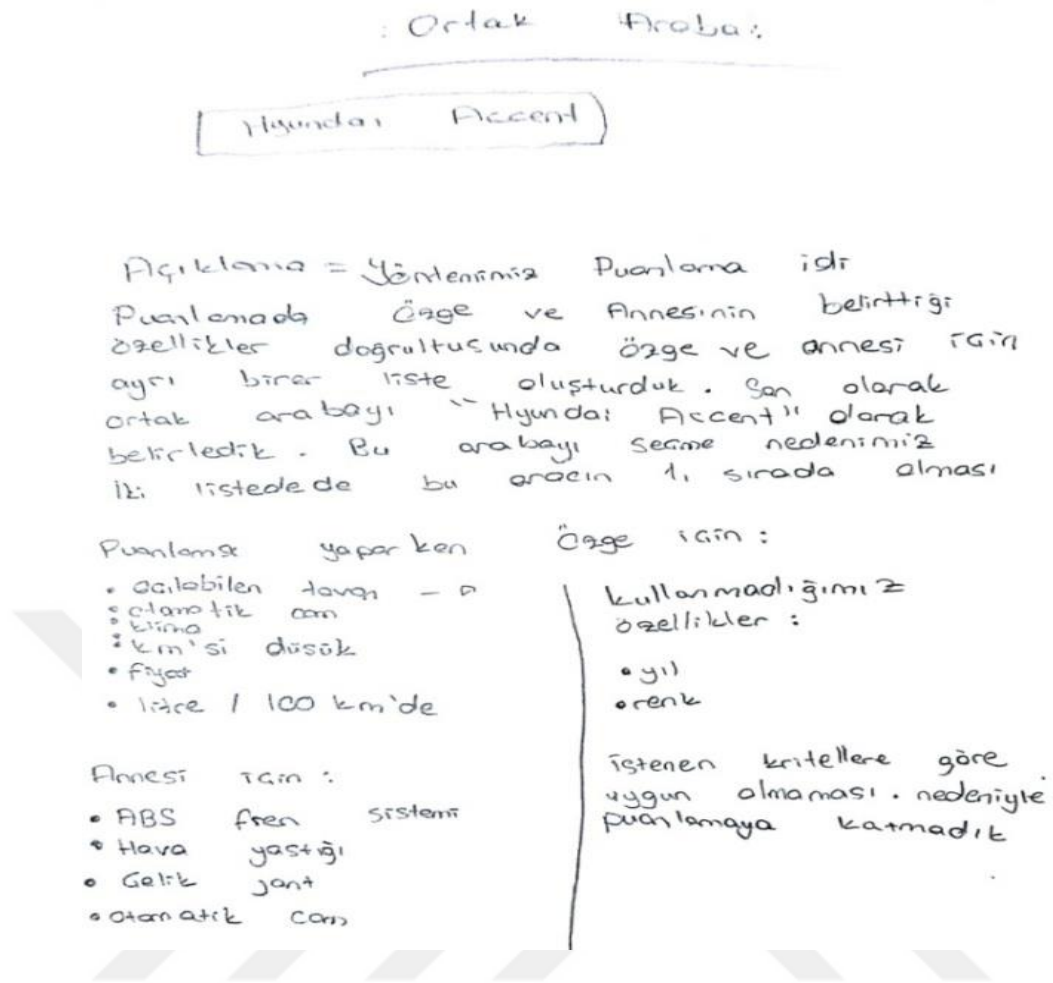 : Ortak Araba :
Hyundai Accent
Açıklama = Yöntemimiz Puanlama idi
Puanlamada Özge ve Annesinin belirttiği
özellikler doğrultusunda özge ve annesi için
ayrı birer liste oluşturduk. Son olarak
ortak arabayı "Hyundai Accent" olarak
belirledik. Bu arabayı seçme nedenimiz
iki listedede bu aracın 1. sırada olması
Puanlama yaparken Özge için :
• açılabilen tavan
• otomatik cam
• klima
• km'si düşük
• fiyat
• litre / 100 km'de
Annesi için :
• ABS fren sistemi
• Hava yastığı
• Çelik jant
• otomatik cam
kullanmadığımız
özellikler :
• yıl
• renk
istenen kritellere göre
uygun olmaması. nedeniyle
puanlamaya katmadık